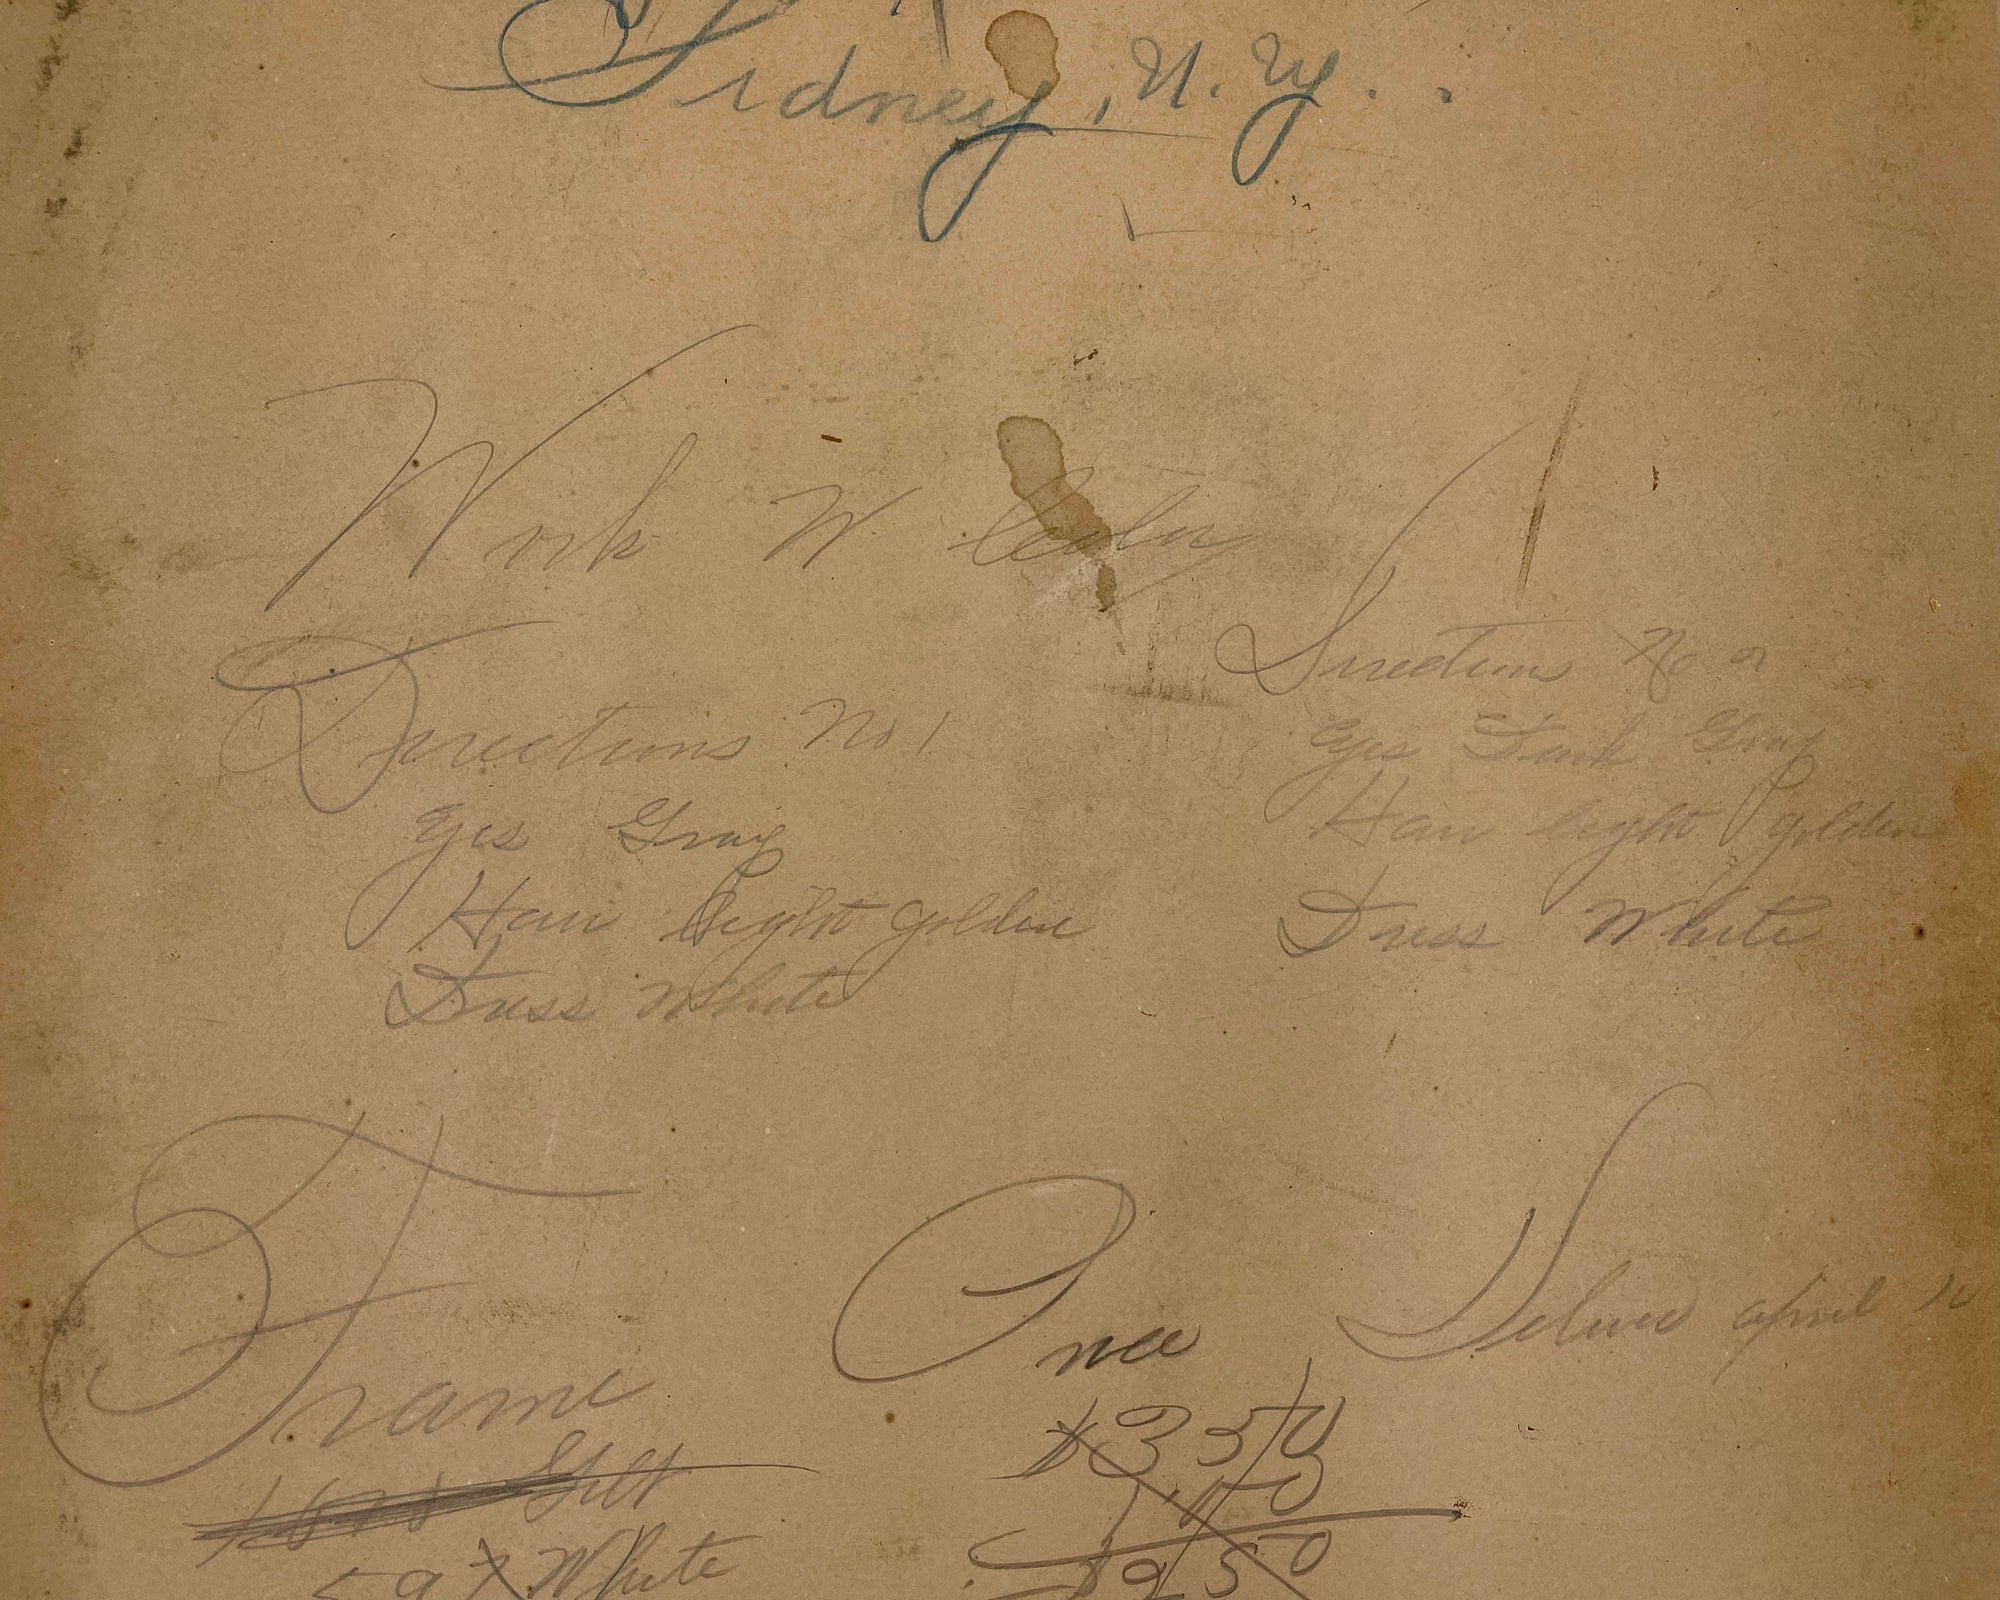 Sidney, N. Y.
Work W Color
Directions No 1
Eyes Gray
Hair light golden
Dress White
Directions No 2
Eyes Dark Gray
Hair light golden
Dress White
Frame
Gilt
597 White
Price
$3 50
1 00
$2 50
Deliver april